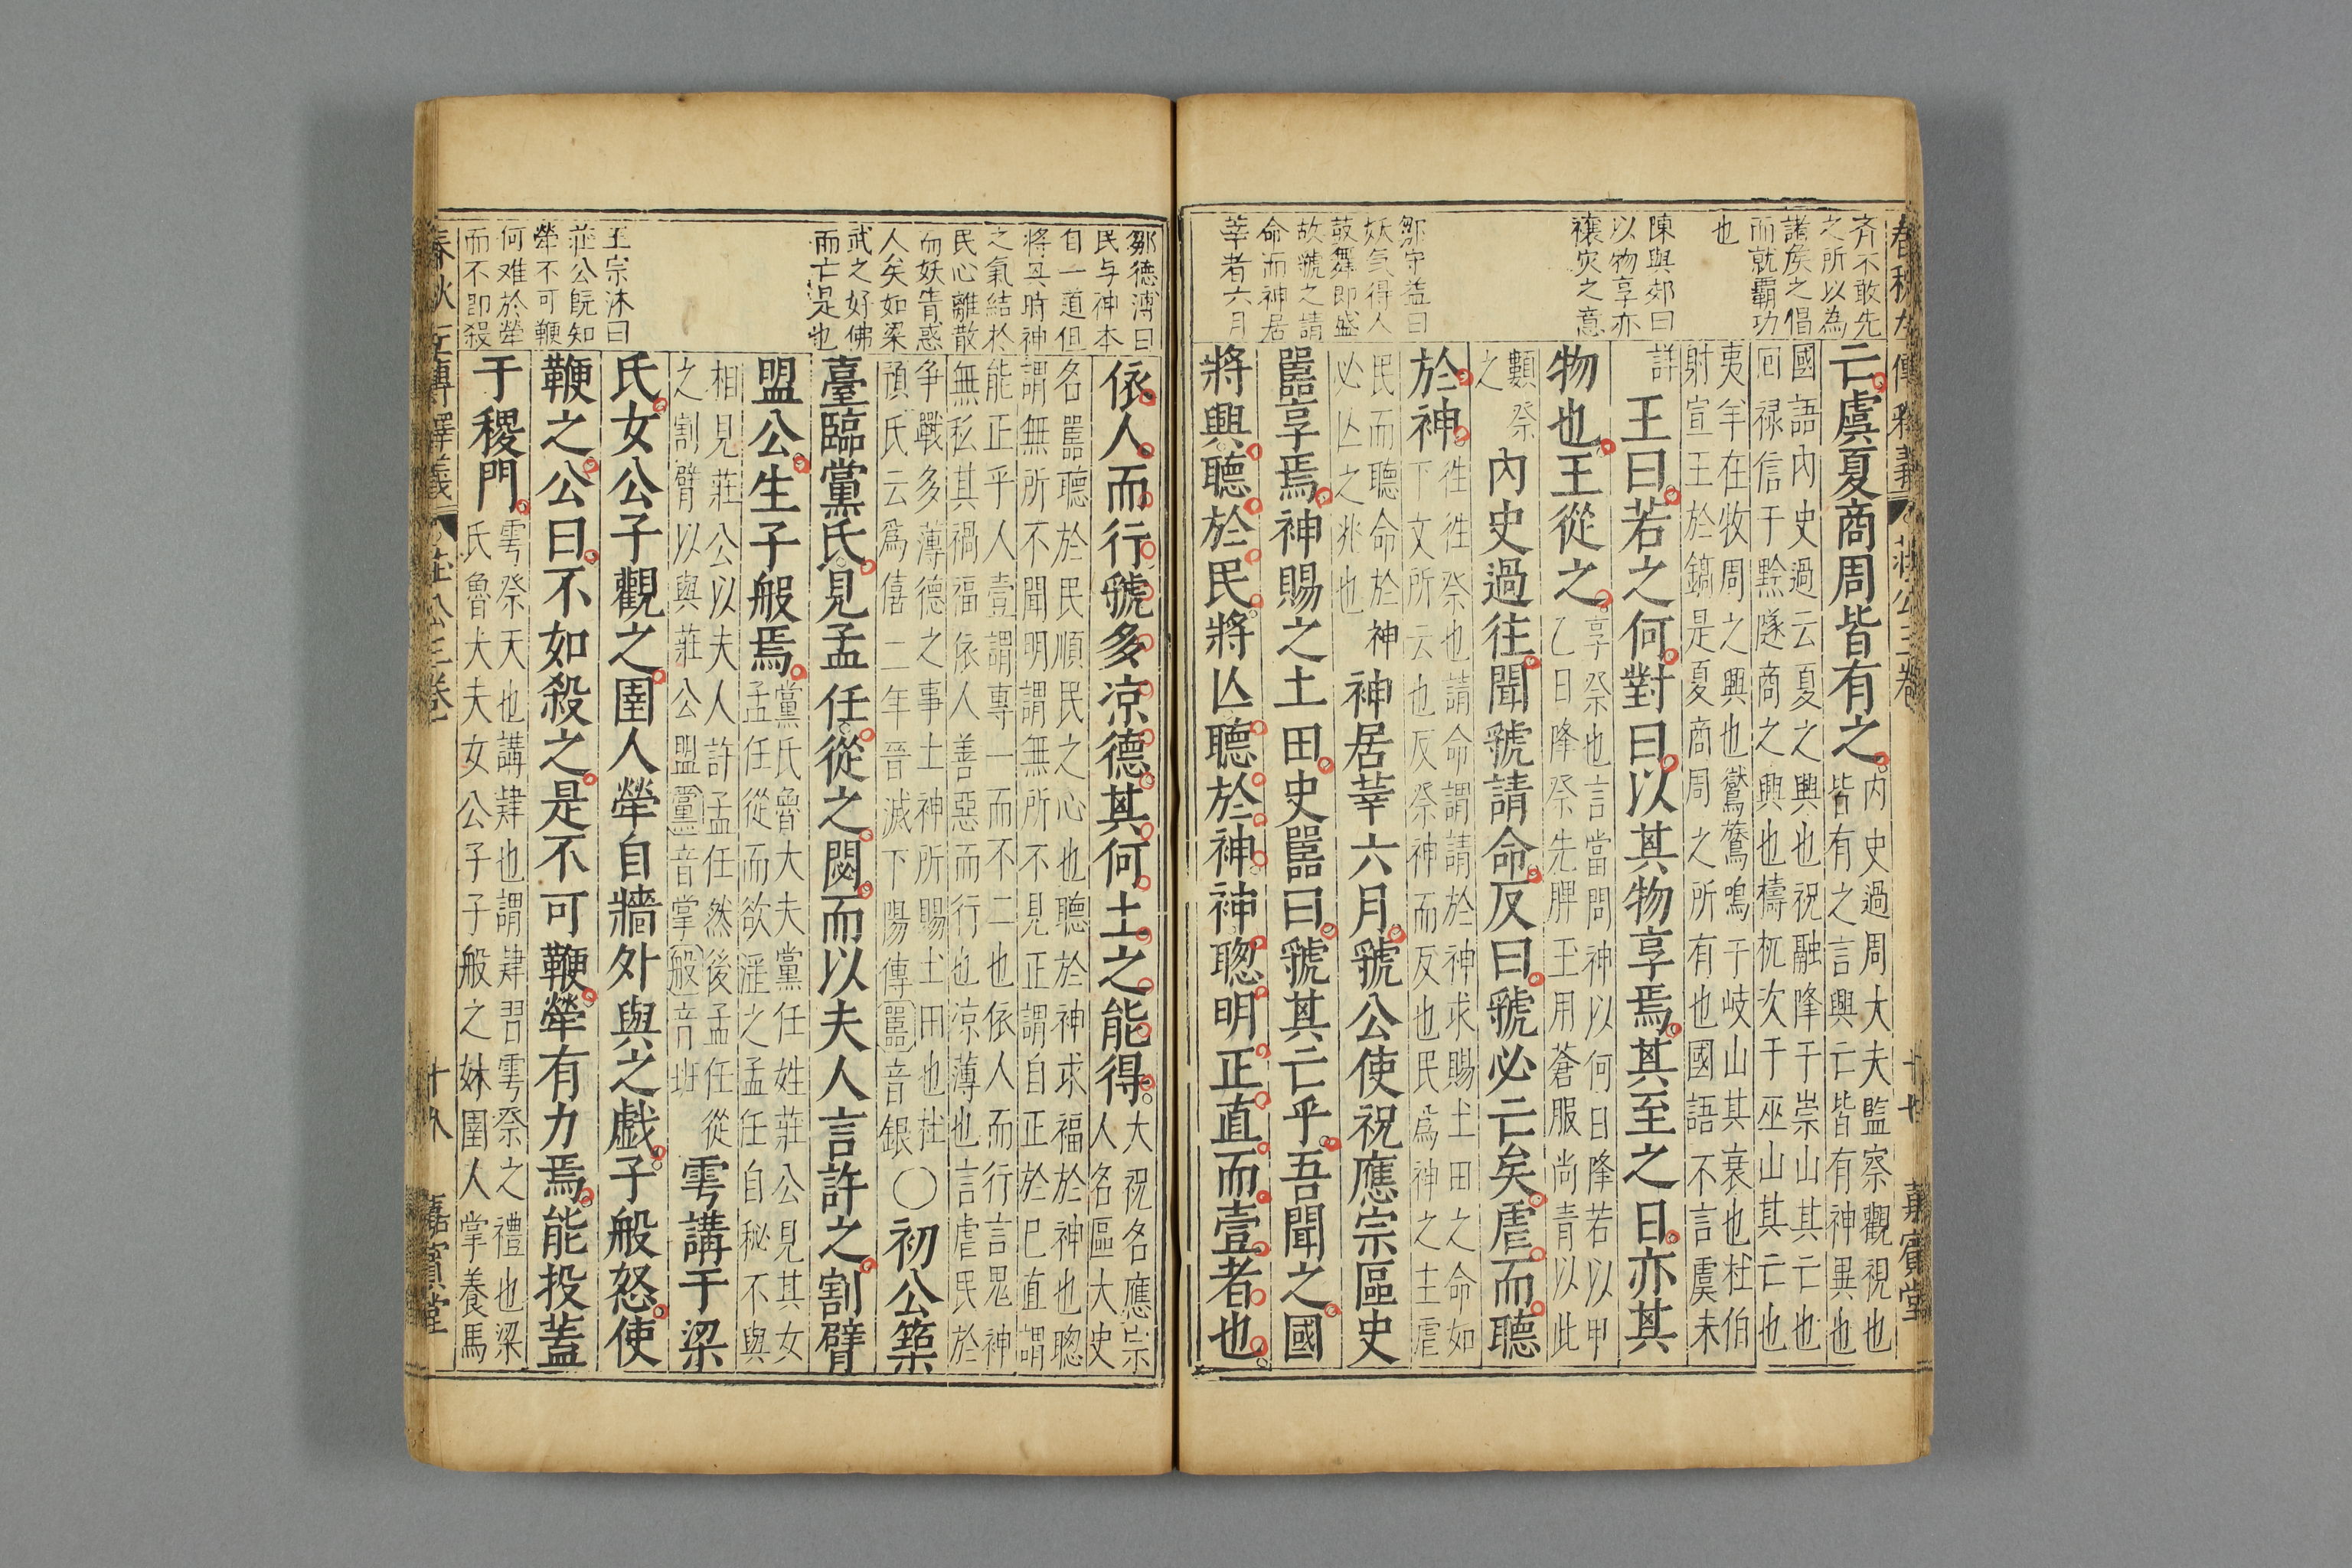 春秋左傳釋義 莊公三卷 十七 嘉賓堂
齐不敢先
之所以為
諸矦之倡
而就霸功
也
陳與郊曰
以物享亦
禳灾之意
鄒守益曰
妖气得人
鼓舞即盛
故虢之請
命而神居
莘者六月
亡虞夏商周皆有之
内史過周大夫監察觀視也
皆有之言興亡皆有神異也
國語内史過云夏之興也祝融降于崇山其亡也
囘禄信于黔隧商之興也檮杌次于巫山其亡也
夷羊在牧周之興也鸑鷟鳴于岐山其衰也杜伯
射宣王於鎬是夏商周之所有也國語不言虞未
詳
王曰若之何對曰以其物享焉其至之日亦其
物也王從之
享祭也言當問神以何日降若以甲
乙日降祭先脾王用蒼服尚青以此
類祭
之
内史過往聞虢請命反曰虢必亡矣虐而聽
於神
徃徃祭也請命謂請於神求賜土田之命如
下文所云也反祭神而反也民為神之主虐
民而聽命於神
必亾之兆也
神居莘六月虢公使祝應宗區史
嚚享焉神賜之土田史嚚曰虢其亡乎吾聞之國
將興聽於民將亾聽於神神聦明正直而壹者也
鄒德溥曰
民与神本
自一道但
將亾時神
之氣結於
民心離散
而妖眚惑
人矣如梁
武之好佛
而亡是也
王宗沐曰
莊公旣知
犖不可鞭
何难於犖
而不即殺
依人而行虢多涼德其何土之能得
大祝名應宗
人名區大史
名嚚聽於民順民之心也聽於神求福於神也聦
謂無所不聞明謂無所不見正謂自正於已直謂
能正乎人壹謂專一而不二也依人而行言鬼神
無私其禍福依人善惡而行也涼薄也言虐民於
争戰多薄德之事土神所賜土田也杜
預氏云爲僖二年晉滅下陽傳嚚音銀
○初公築
臺臨黨氏見孟任從之閟而以夫人言許之割臂
盟公生子般焉
黨氏魯大夫黨任姓莊公見其女
孟任從而欲滛之孟任自秘不與
相見莊公以夫人許孟任然後孟任從
之割臂以與莊公盟黨音掌般音班
雩講于梁
氏女公子觀之圉人犖自牆外與之戲子般怒使
鞭之公曰不如殺之是不可鞭犖有力焉能投蓋
于稷門
雩祭天也講肄也謂肄習雩祭之禮也梁
氏魯大夫女公子子般之妹圉人掌養馬
春秋左傳釋義 莊公三卷 十八 嘉賓堂